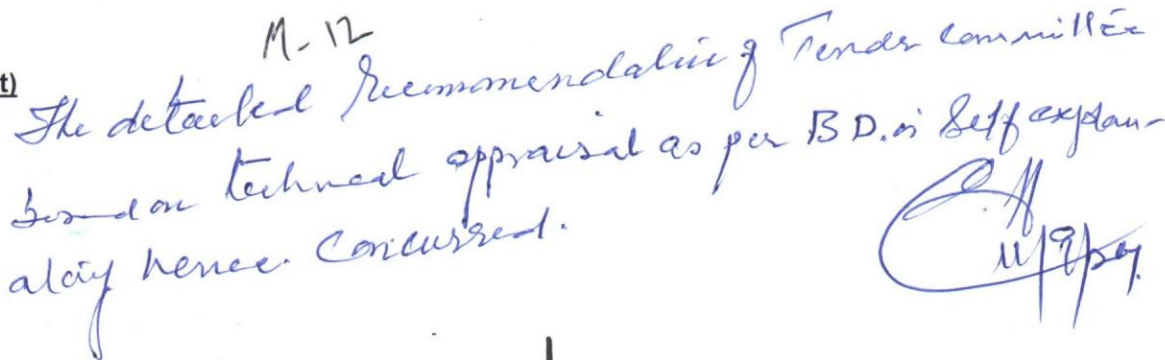 M-12
t)
The detailed Recommendation of Tender Committee
based on technical appraisal as per B D. is Self explan-
atory hence. Concurred.